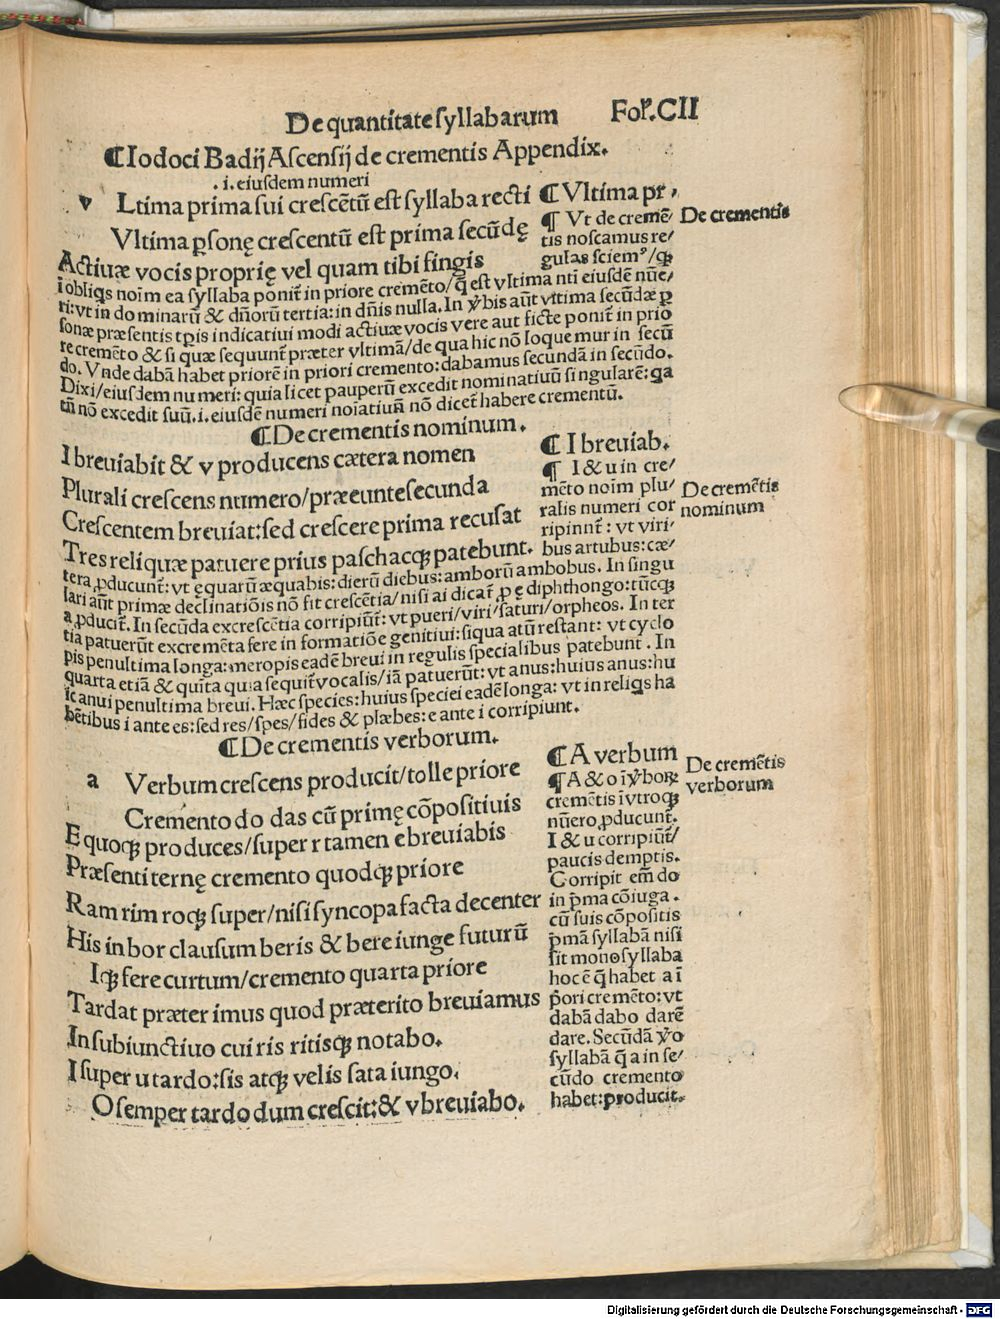 De quantitate ſyllabarum Fol.CII
¶Iodoci Badij Aſcenſij de crementis Appendix.
.i. eiuſdem numeri
v Ltima prima ſui creſcētū eſt ſyllaba recti
Vltima ꝑſonę creſcentū eſt prima ſecūdę
Actiuæ vocis proprię vel quam tibi fingis
¶Vltima pr,
¶ Vt de cremē/
tis noſcamus re/
gulas ſciemꝰ/ꝙ
De crementis
ī obliq̄s noīm ea ſyllaba ponit̄ in priore cremēto/q̄ eſt vltima nti eiuſdē nūe/
ri: vt in do minarū & dn̄orū tertia: in dn̄is nulla. In v̓bis aūt vltima ſecūdæ ꝑ
ſonæ præſentis tp̄is indicatiui modi actiuæ vocis vere aut ficte ponit̄ in prio
re cremēto & ſi quæ ſequunt̄ præter vltimā/de qua hic nō loquemur in ſecū
do. Vnde dabā habet priorē in priori cremento: dabamus ſecundā in ſecūdo.
Dixi/eiuſdem numeri: quia licet pauperū excedit nominatiuū ſingularē: ꝗa
tn̄ nō excedit ſuū.i. eiuſdē numeri noīatiuū nō dicet̄ habere crementū.
¶De crementis nominum.
I breuiabit & v producens cætera nomen
Plurali creſcens numero/præeunte ſecunda
Creſcentem breuiat: ſed creſcere prima recuſat
Tres reliquæ patuere prius paſchacꝙ patebunt.
¶ I breuiab.
¶ I & u in cre/
mēto noīm plu/
ralis numeri cor
ripinnt̄: vt viri/
bus artubus: cæ/
De cremētis
nominum
tera ꝓducunt̄: vt equarū æquabis: dierū diebus: amborū ambobus. In ſingu
lari aūt primæ declinatiōis nō fit creſcētia/niſi ai dicat̄ ꝓ ę diphthongo: tūcꝙ
a ꝓducit̄. In ſecūda excreſcētia corripiūt̄: vt pueri/viri/ſaturi/orpheos. In ter
tia patuerūt excremēta fere in formatiōe genitiui: ſiqua atū reſtant: vt cyclo
pis penultima longa: meropis eadē breui in regulis ſpecialibus patebunt. In
quarta etiā & quīta quia ſequit̄ vocalis/iā patuerūt: vt anus: huius anus: hu
ic anui penultima breui. Hæc ſpecies: huius ſpeciei eadē longa: vt in reliq̄s ha
bētibus i ante es: ſed res/ſpes/fides & plæbes: e ante i corripiunt.
¶De crementis verborum.
a Verbum creſcens producit/tolle priore
Cremento do das cū primę cōpoſitiuis
E quoꝙ produces/ſuper r tamen e breuiabis
Præſenti ternę cremento quodꝙ priore
Ram rim roꝙ ſuper/niſi ſyncopa facta decenter
His in bor clauſum beris & bere iunge futurū
Iꝙ fere curtum/cremento quarta priore
Tardat præter imus quod præterito breuiamus
In ſubiunctiuo cui ris ritiſꝙ notabo.
I ſuper u tardo: ſis atꝙ velis ſata iungo.
O ſemper tardo dum creſcit: & v breuiabo.
¶A verbum
¶A & o ī v̓boꝝ
cremētis ī vtroꝙ
nūero ꝓducunt̄.
I & u corripiūt̄/
paucis demptis.
Corripit em̄ do
in p̄ma cōiuga.
cū ſuis cōpoſitis
p̄mā ſyllabā niſi
ſit monoſyllaba
hoc ē q̄ habet a ī
p̄ori cremēto: vt
dabā dabo darē
dare. Secūdā v̓o
ſyllabā q̄ a in ſe/
cūdo cremento
habet: producit.
De cremētis
verborum
Digitalisierung gefördert durch die Deutsche Forschungsgemeinschaft - DFG